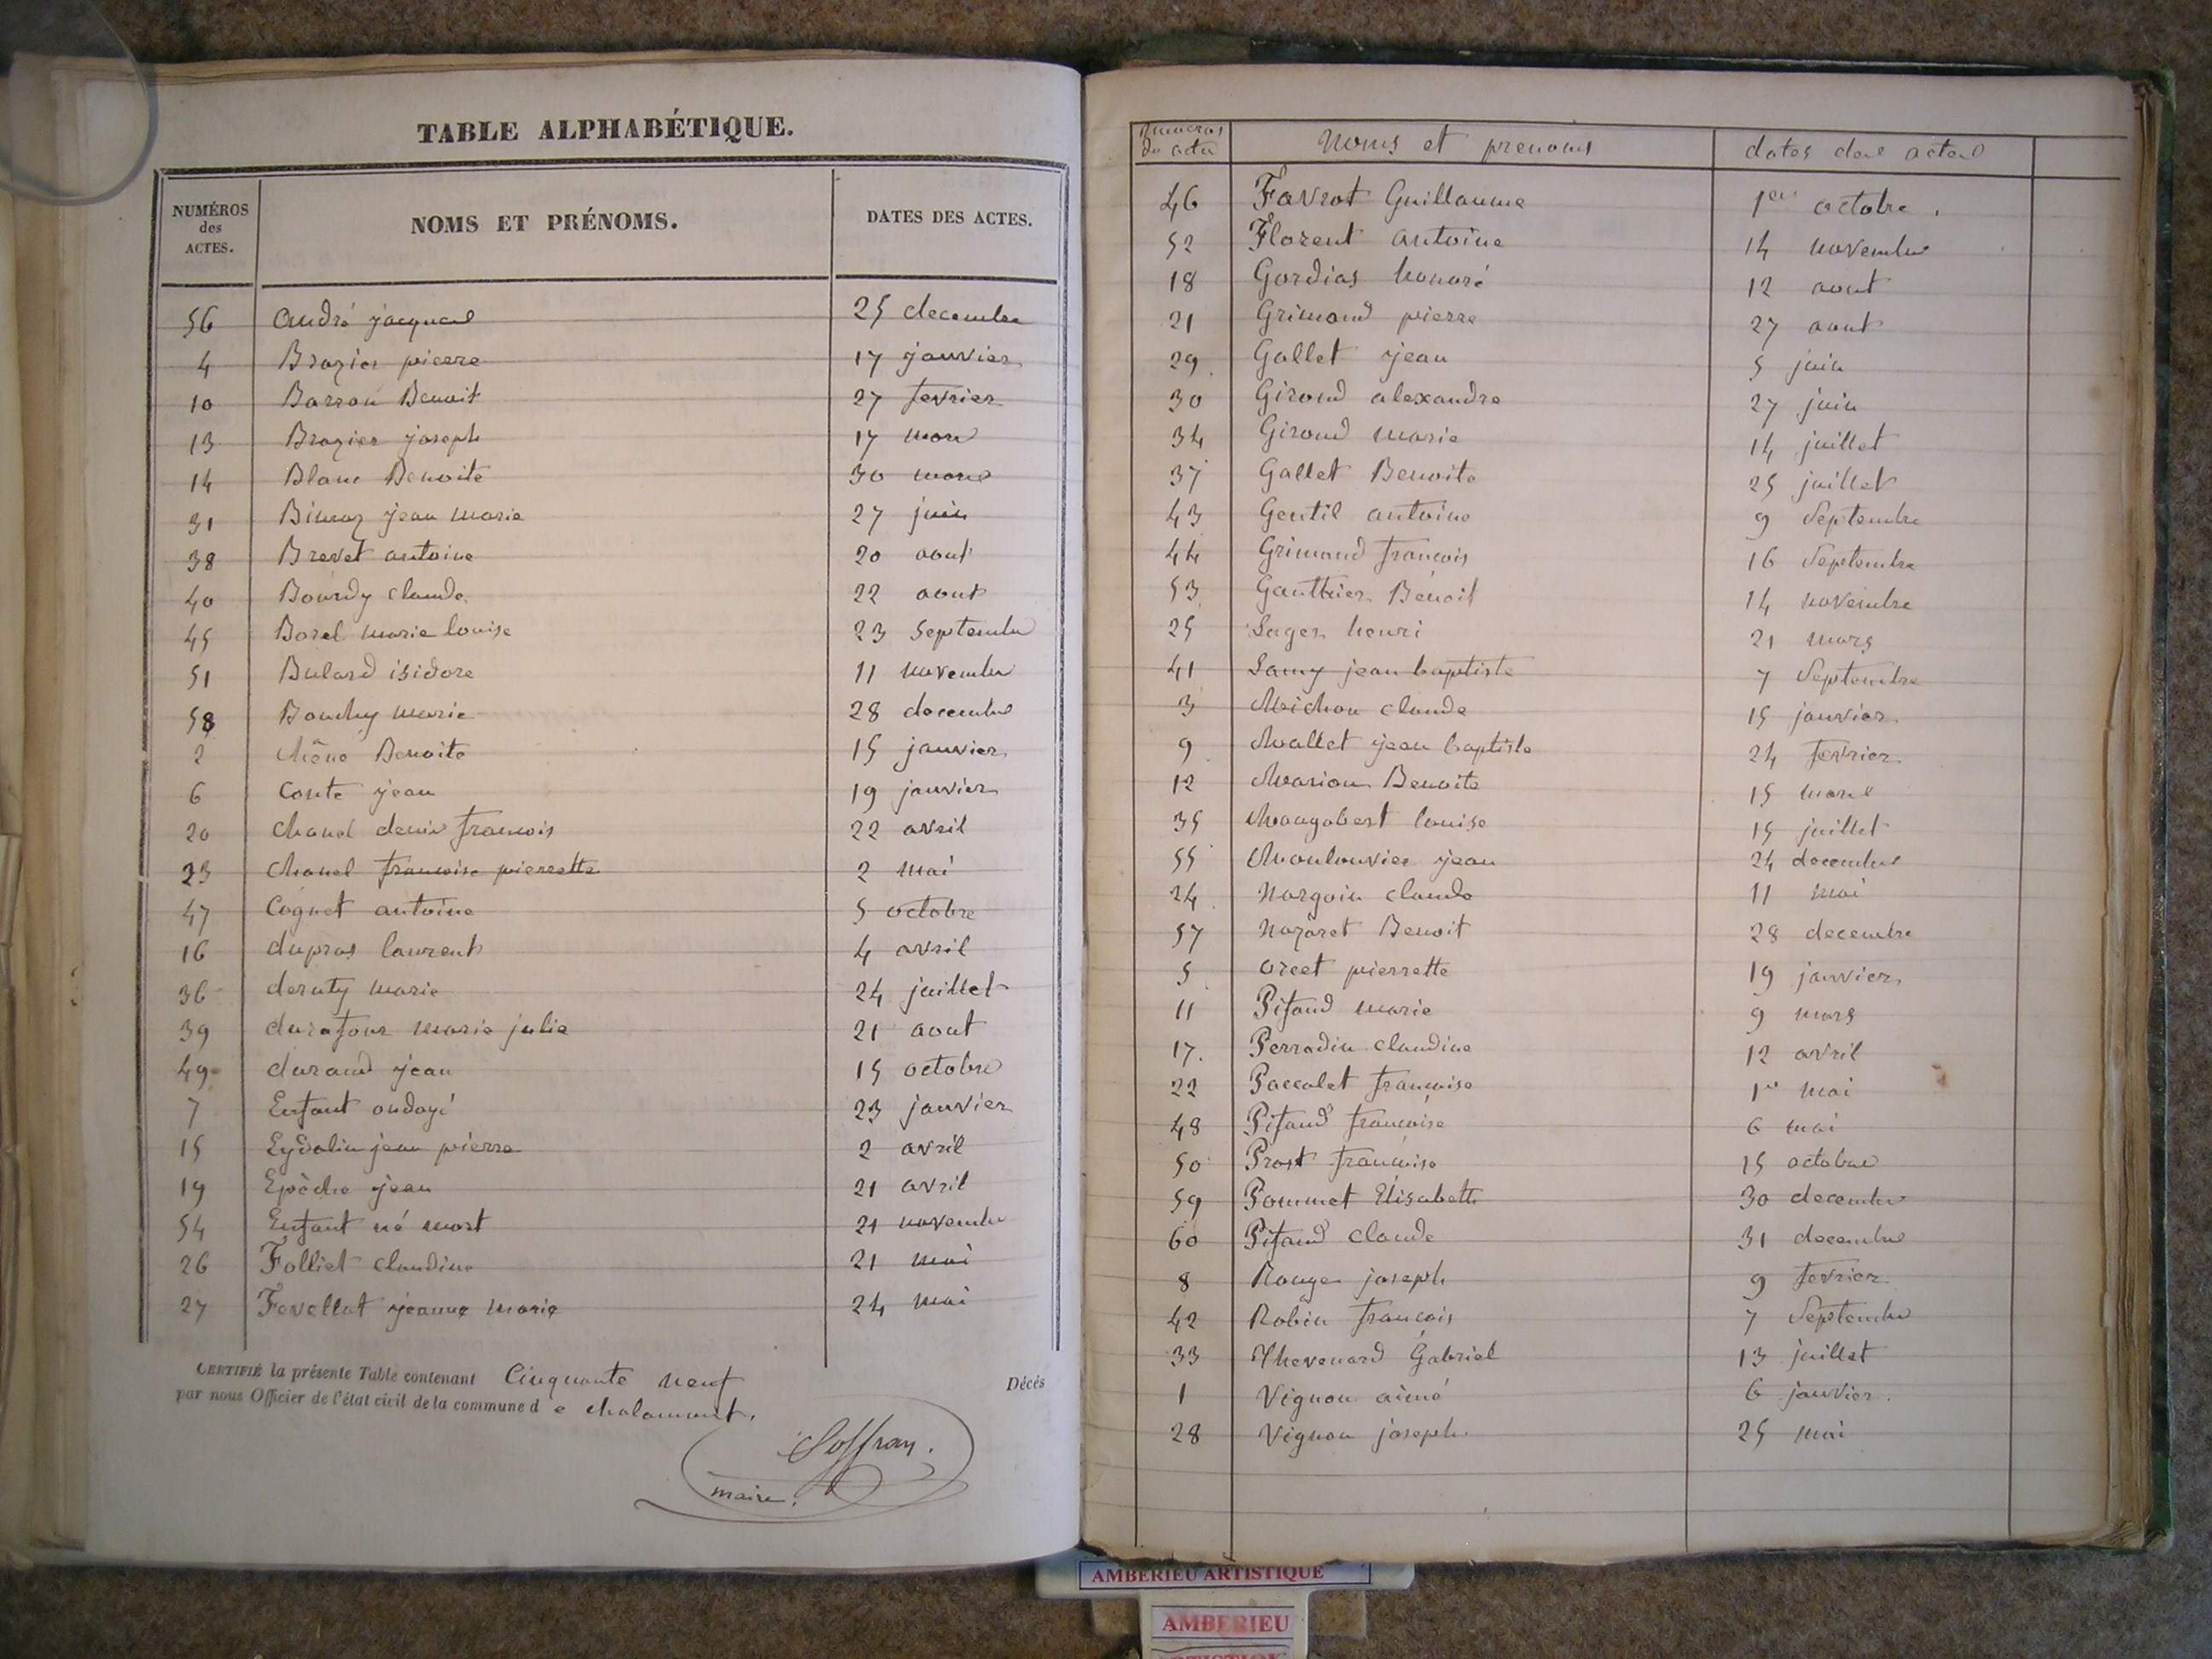 TABLE ALPHABÉTIQUE.
NUMÉROS des ACTES. NOMS ET PRÉNOMS. DATES DES ACTES.
56 André jacques 25 decembre
4 Brazier pierre 17 janvier
10 Barron Benoit 27 fevrier
13 Brazier joseph 17 mars
14 Blanc Benoite 30 mars
31 jean marie 27 juin
38 Brevet antoine 20 aout
40 Bourdy claude 22 aout
45 Borel marie louise 23 Septembre
51 Bulard isidore 11 novembre
58 Bouchy marie 28 decembre
2 chêne Benoite 15 janvier
6 Conte jean 19 janvier
20 chanel denis francois 22 avril
23 chanel francoise pierrette 2 mai
47 Cognet antoine 5 octobre
16 dupras laurent 4 avril
36 deruty marie 24 juillet
39 durafour marie julie 21 aout
49 durand jean 15 octobre
7 Enfant ondoyé 23 janvier
15 Eydalin jean pierre 2 avril
19 Epèche jean 21 avril
54 Enfant né mort 21 novembre
26 Folliet claudine 21 mai
27 Fevellat jeanne marie 24 mai
CERTIFIÉ la présente Table contenant Cinquante neuf Décés
par nous Officier de l'état civil de la commune d e chalamont.
Soffray.
maire.
Numeros des actes Noms et prenoms dates des actes
46 Favrot Guillaume 1er octobre.
52 Florent antoine 14 novembre
18 Gordias honoré 12 aout
21 Grimand pierre 27 aout
29 Gallet jean 5 juin
30 Giroud alexandre 27 juin
34 Giroud marie 14 juillet
37 Gallet Benoite 25 juillet
43 Gentil antoine 9 Septembre
44 Grimand francois 16 Septembre
53 Gauthier Benoit 14 novembre
25 Lager henri 21 mars
41 Lamy jean baptiste 7 Septembre
3 Michon claude 15 janvier
9 Mallet jean baptiste 24 fevrier
12 Marion Benoite 15 mars
35 Mongobert louise 15 juillet
55 Moulouvier jean 24 decembre
24 Nargoin claude 11 mai
57 Nazaret Benoit 28 decembre
5 orcet pierrette 19 janvier
11 Pitaud marie 9 mars
17. Perradin claudine 12 avril
22 Paccalet francoise 1er mai
48 Pitaud francoise 6 mai
50 Prost francoise 15 octobre
59 Pommet Elisabeth 30 decembre
60 Pitaud claude 31 decembre
8 Rouger joseph 9 fevrier
42 Robin francois 7 Septembre
33 Thevenard Gabriel 13 juillet
1 Vignon aimé 6 janvier.
28 Vignon joseph 25 mai
AMBERIEU ARTISTIQUE
AMBERIEU
ARTISTIQUE